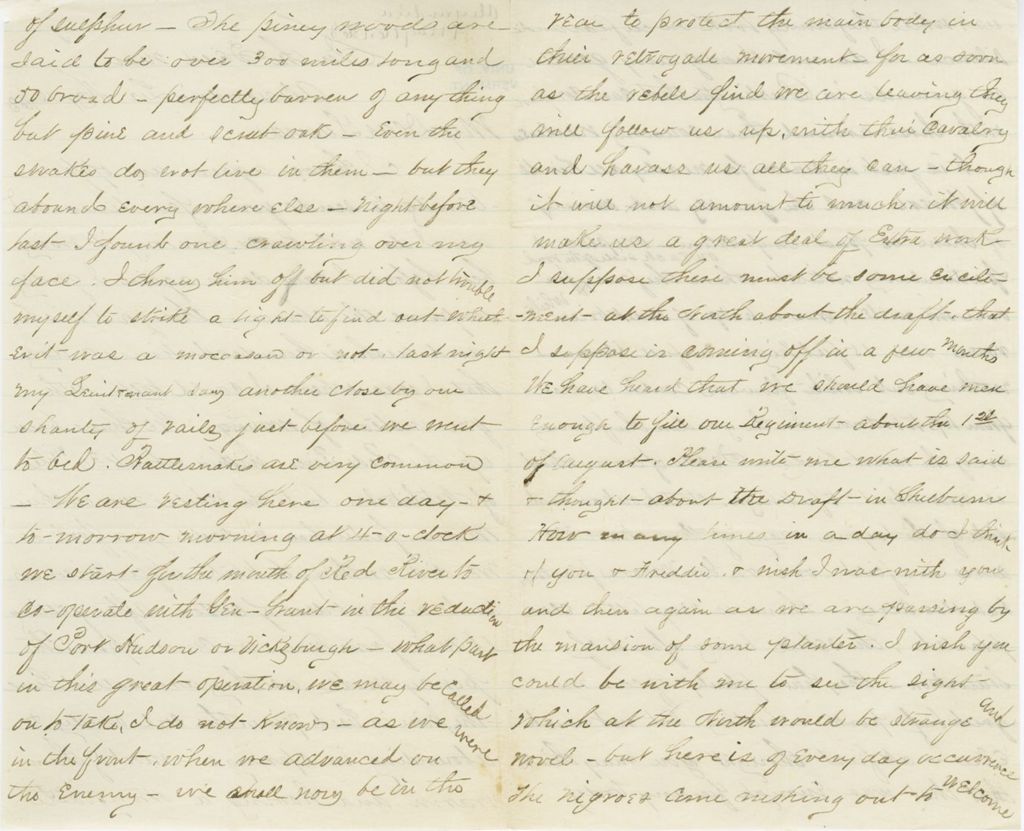 of sulphur - The piney woods are
said to be over 300 miles long and
50 broad - perfectly barren of any thing
but pine and scrub oak - Even the
snakes do not live in them - but they
abound every where else - Night before
last I found one crawling over my
face. I threw him off but did not trouble
myself to strike a light to find out wheth
er it was a moccason or not. last night
my Lieutenant saw another close by our
shanty of rails just before we went
to bed. Rattlesnakes are very common
- We are resting here one day - &
to-morrow morning at 4-o-clock
we start for the mouth of Red River to
co-operate with Gen - Grant in the reduction
of Port Hudson or Vicksburgh - what part
in this great operation, we may be called
on to take, I do not know - as we were
in the front, when we advanced on
the Enemy - we shall now be in the
rear to protect the main body in
their retrogade movement - for as soon
as the rebels find we are leaving they
will follow us up, with their Cavalry
and harass us all they can - though
it will not amount to much. it will
make us a great deal of Extra work
I suppose there must be some excite-
-ment - at the North about the draft. that
I suppose is coming off in a few months
We have heard that we should have men
Enough to fill our Regiment about the 1st
of August. Please write me what is said
& thought about the Draft in Shelburn
How many times in a day do I think
of you & Freddie. & wish I was with you
and then again as we are passing by
the mansion of some planter. I wish you
could be with me to see the sight
which at the North would be strange and
novel - but here is of every day occurrence
The nigroes come rushing out to welcome